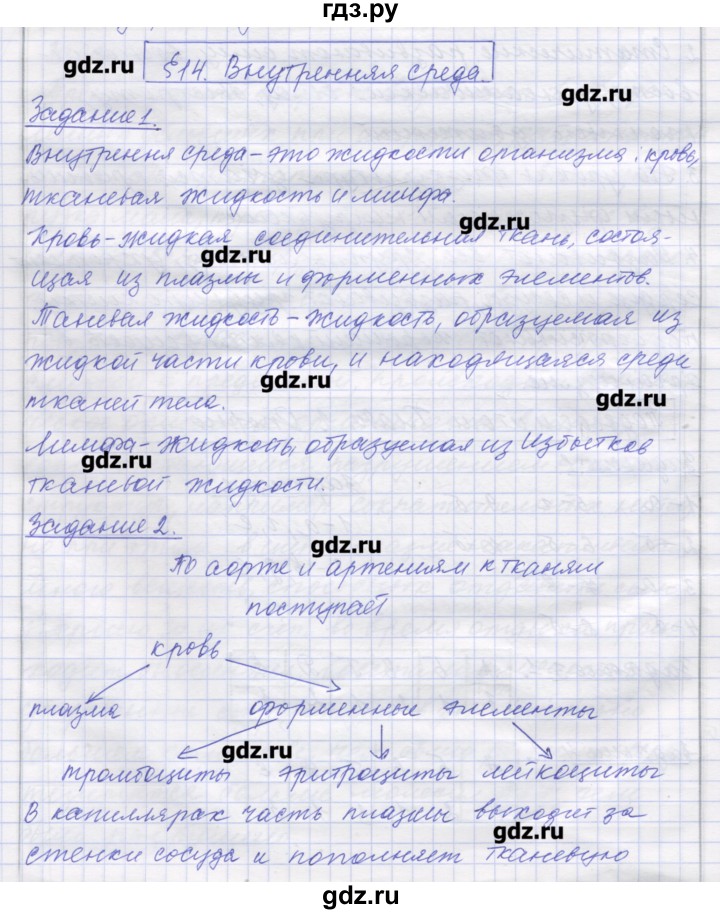 гдз.ру
gdz.ru
§14. Внутренняя среда.
gdz.ru
Задание 1.
Внутрення среда - это жидкости организма: кровь,
тканевая жидкость и лимфа.
gdz.ru
Кровь - жидкая соединительная ткань, состоя-
gdz.ru
щая из плазмы и форменных элементов.
Таневая жидкость - жидкость, образуемая из
жидкой части крови, и находящаяся среди
gdz.ru
тканей тела.
gdz.ru
Лимфа - жидкость, образуемая из избытков
gdz.ru
тканевой жидкости.
Задание 2.
gdz.ru
По аорте и артениям к тканям
поступает
кровь
плазма форменные элементы
gdz.ru
тромбоциты эритроциты лейкоциты
В капиллярах часть плазмы выходит за
gdz.ru
стенки сосуда и пополняет тканевую
gdz.ru